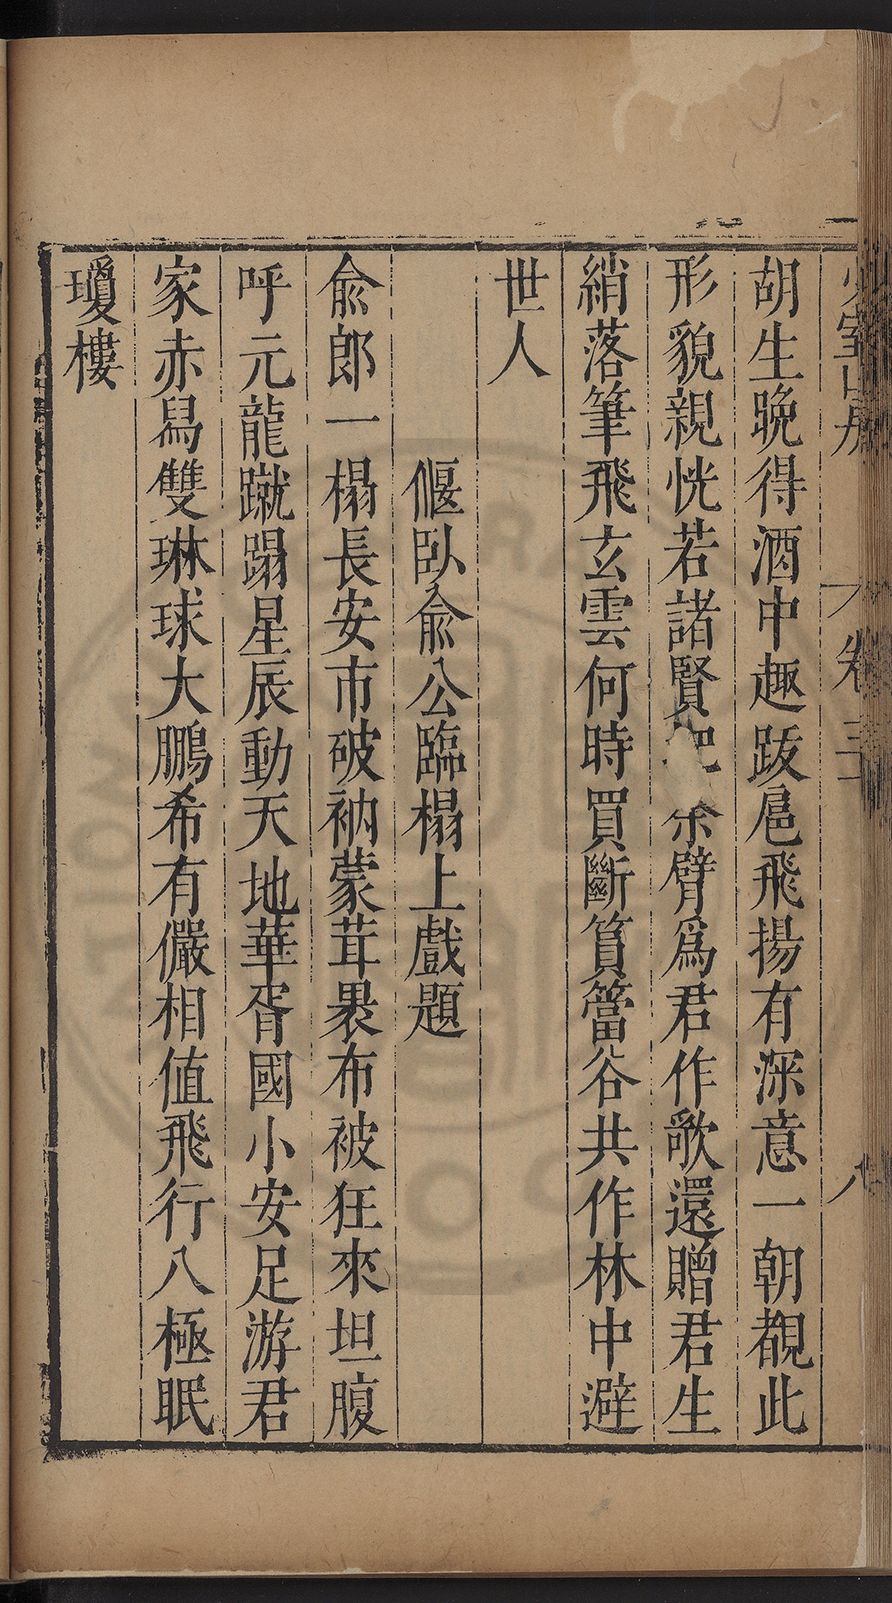 胡生晚得酒中趣跋扈飛揚有深意一朝覩此
形貌親恍若諸賢把余臂爲君作歌還贈君生
綃落筆飛玄雲何時買斷篔簹谷共作林中避
世人
偃臥俞公臨榻上戲題
俞郎一榻長安市破衲蒙茸裹布被狂來坦腹
呼元龍蹴蹋星辰動天地華胥國小安足游君
家赤舄雙琳球大鵬希有儼相值飛行八極眠
瓊樓
少室山房
卷三十
八